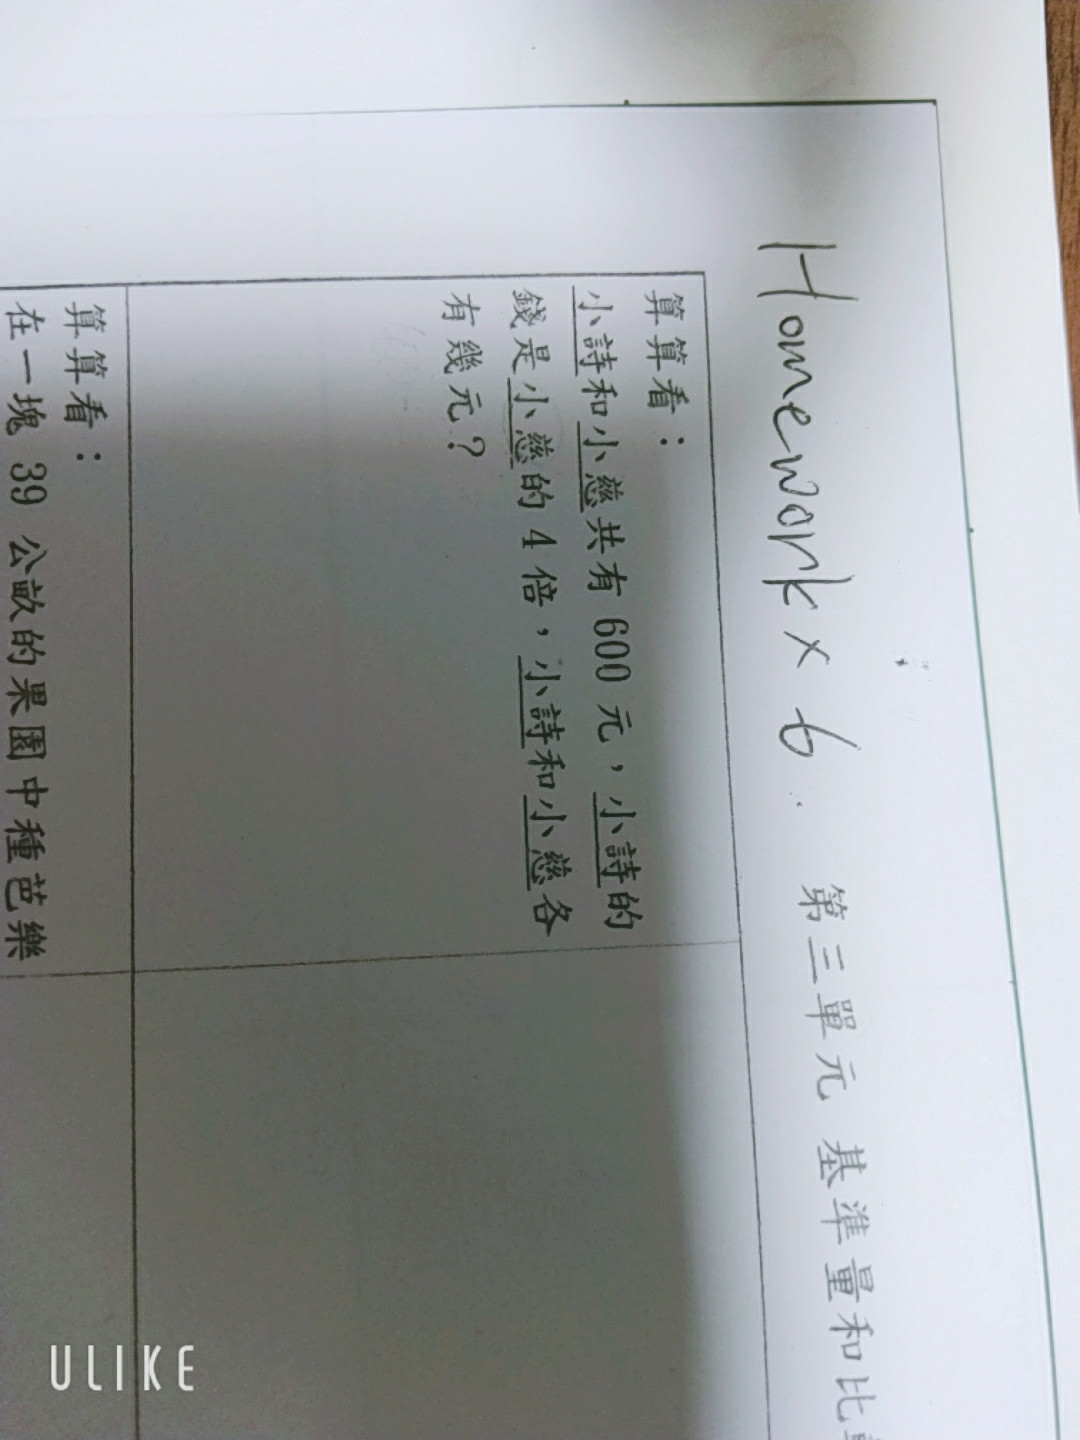 Homework × 6.
第三單元 基準量和比
算算看：
小詩和小慈共有 600 元，小詩的
錢是小慈的 4 倍，小詩和小慈各
有幾元？
算算看：
在一塊 39 公畝的果園中種芭樂
ULIKE